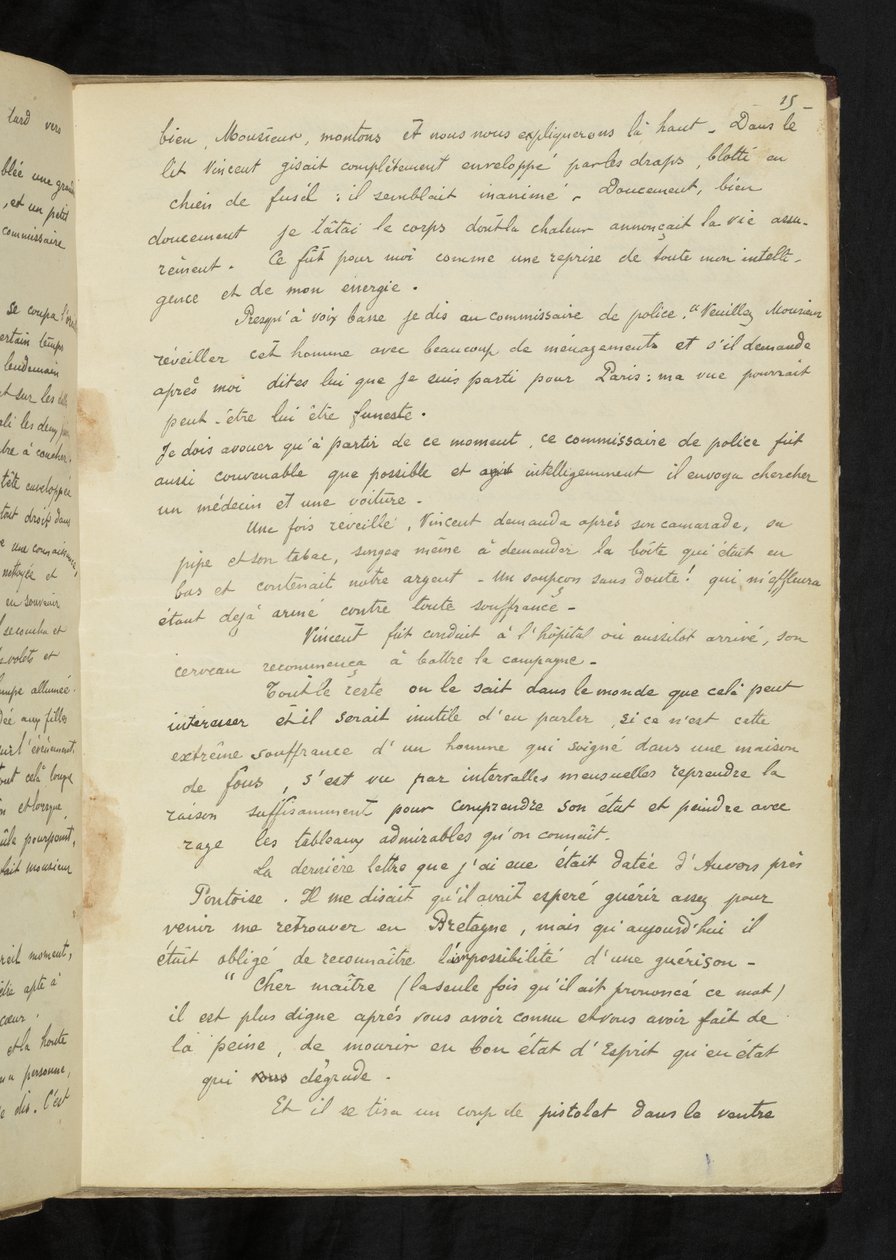 tard vers
blée une grande
, et un petit
commissaire
se coupa l'oreille
ertain temps
lendemain
t sur les dalles
ali les deux
bre à coucher.
tête enveloppée
tout droit dans
une connaissance,
nettoyée et
en souvenir
l se coucha et
volets et
mpe allumée.
dée aux filles
sur l'évènement.
out celà lorsque
n et lorsque
ûle pourpoint,
lait monsieur
reil moment,
être apte à
cœur.
et la honte
ma personne,
dis. C'est
15 -
bien, Monsieur, montons et nous nous expliquerons là haut - Dans le
lit Vincent gisait complètement enveloppé par les draps, blotti en
chien de fusil : il semblait inanimé - Doucement, bien
doucement je tâtai le corps dont la chaleur annonçait la vie assu-
rément. Ce fut pour moi comme une reprise de toute mon intelli-
gence et de mon énergie.
Presqu'à voix basse je dis au commissaire de police, "Veuillez Monsieur
réveiller cet homme avec beaucoup de ménagements et s'il demande
après moi dites lui que je suis parti pour Paris : ma vue pourrait
peut-être lui être funeste.
Je dois avouer qu'à partir de ce moment, ce commissaire de police fut
aussi convenable que possible et intelligemment il envoya chercher
un médecin et une voiture -
Une fois réveillé, Vincent demanda après son camarade, sa
pipe et son tabac, songea même à demander la boîte qui était en
bas et contenait notre argent - Un soupçon sans doute! qui m'effleura
étant dejà armé contre toute souffrance -
Vincent fut conduit à l'hôpital où aussitôt arrivé, son
cerveau recommença à battre la campagne -
Tout le reste on le sait dans le monde que celà peut
intéresser et il serait inutile d'en parler, si ce n'est cette
extrême souffrance d'un homme qui soigné dans une maison
de fous, s'est vu par intervalles mensuelles reprendre la
raison suffisamment pour comprendre son état et peindre avec
rage les tableaux admirables qu'on connaît.
La dernière lettre que j'ai eue était datée d'Auvers près
Pontoise. Il me disait qu'il avait esperé guérir assez pour
venir me retrouver en Bretagne, mais qu'aujourd'hui il
était obligé de reconnaître l'impossibilité d'une guérison -
"Cher maître (la seule fois qu'il ait prononcé ce mot)
il est plus digne après vous avoir connu et vous avoir fait de
la peine, de mourir en bon état d'Esprit qu'en état
qui dégrade.
Et il se tira un coup de pistolet dans le ventre